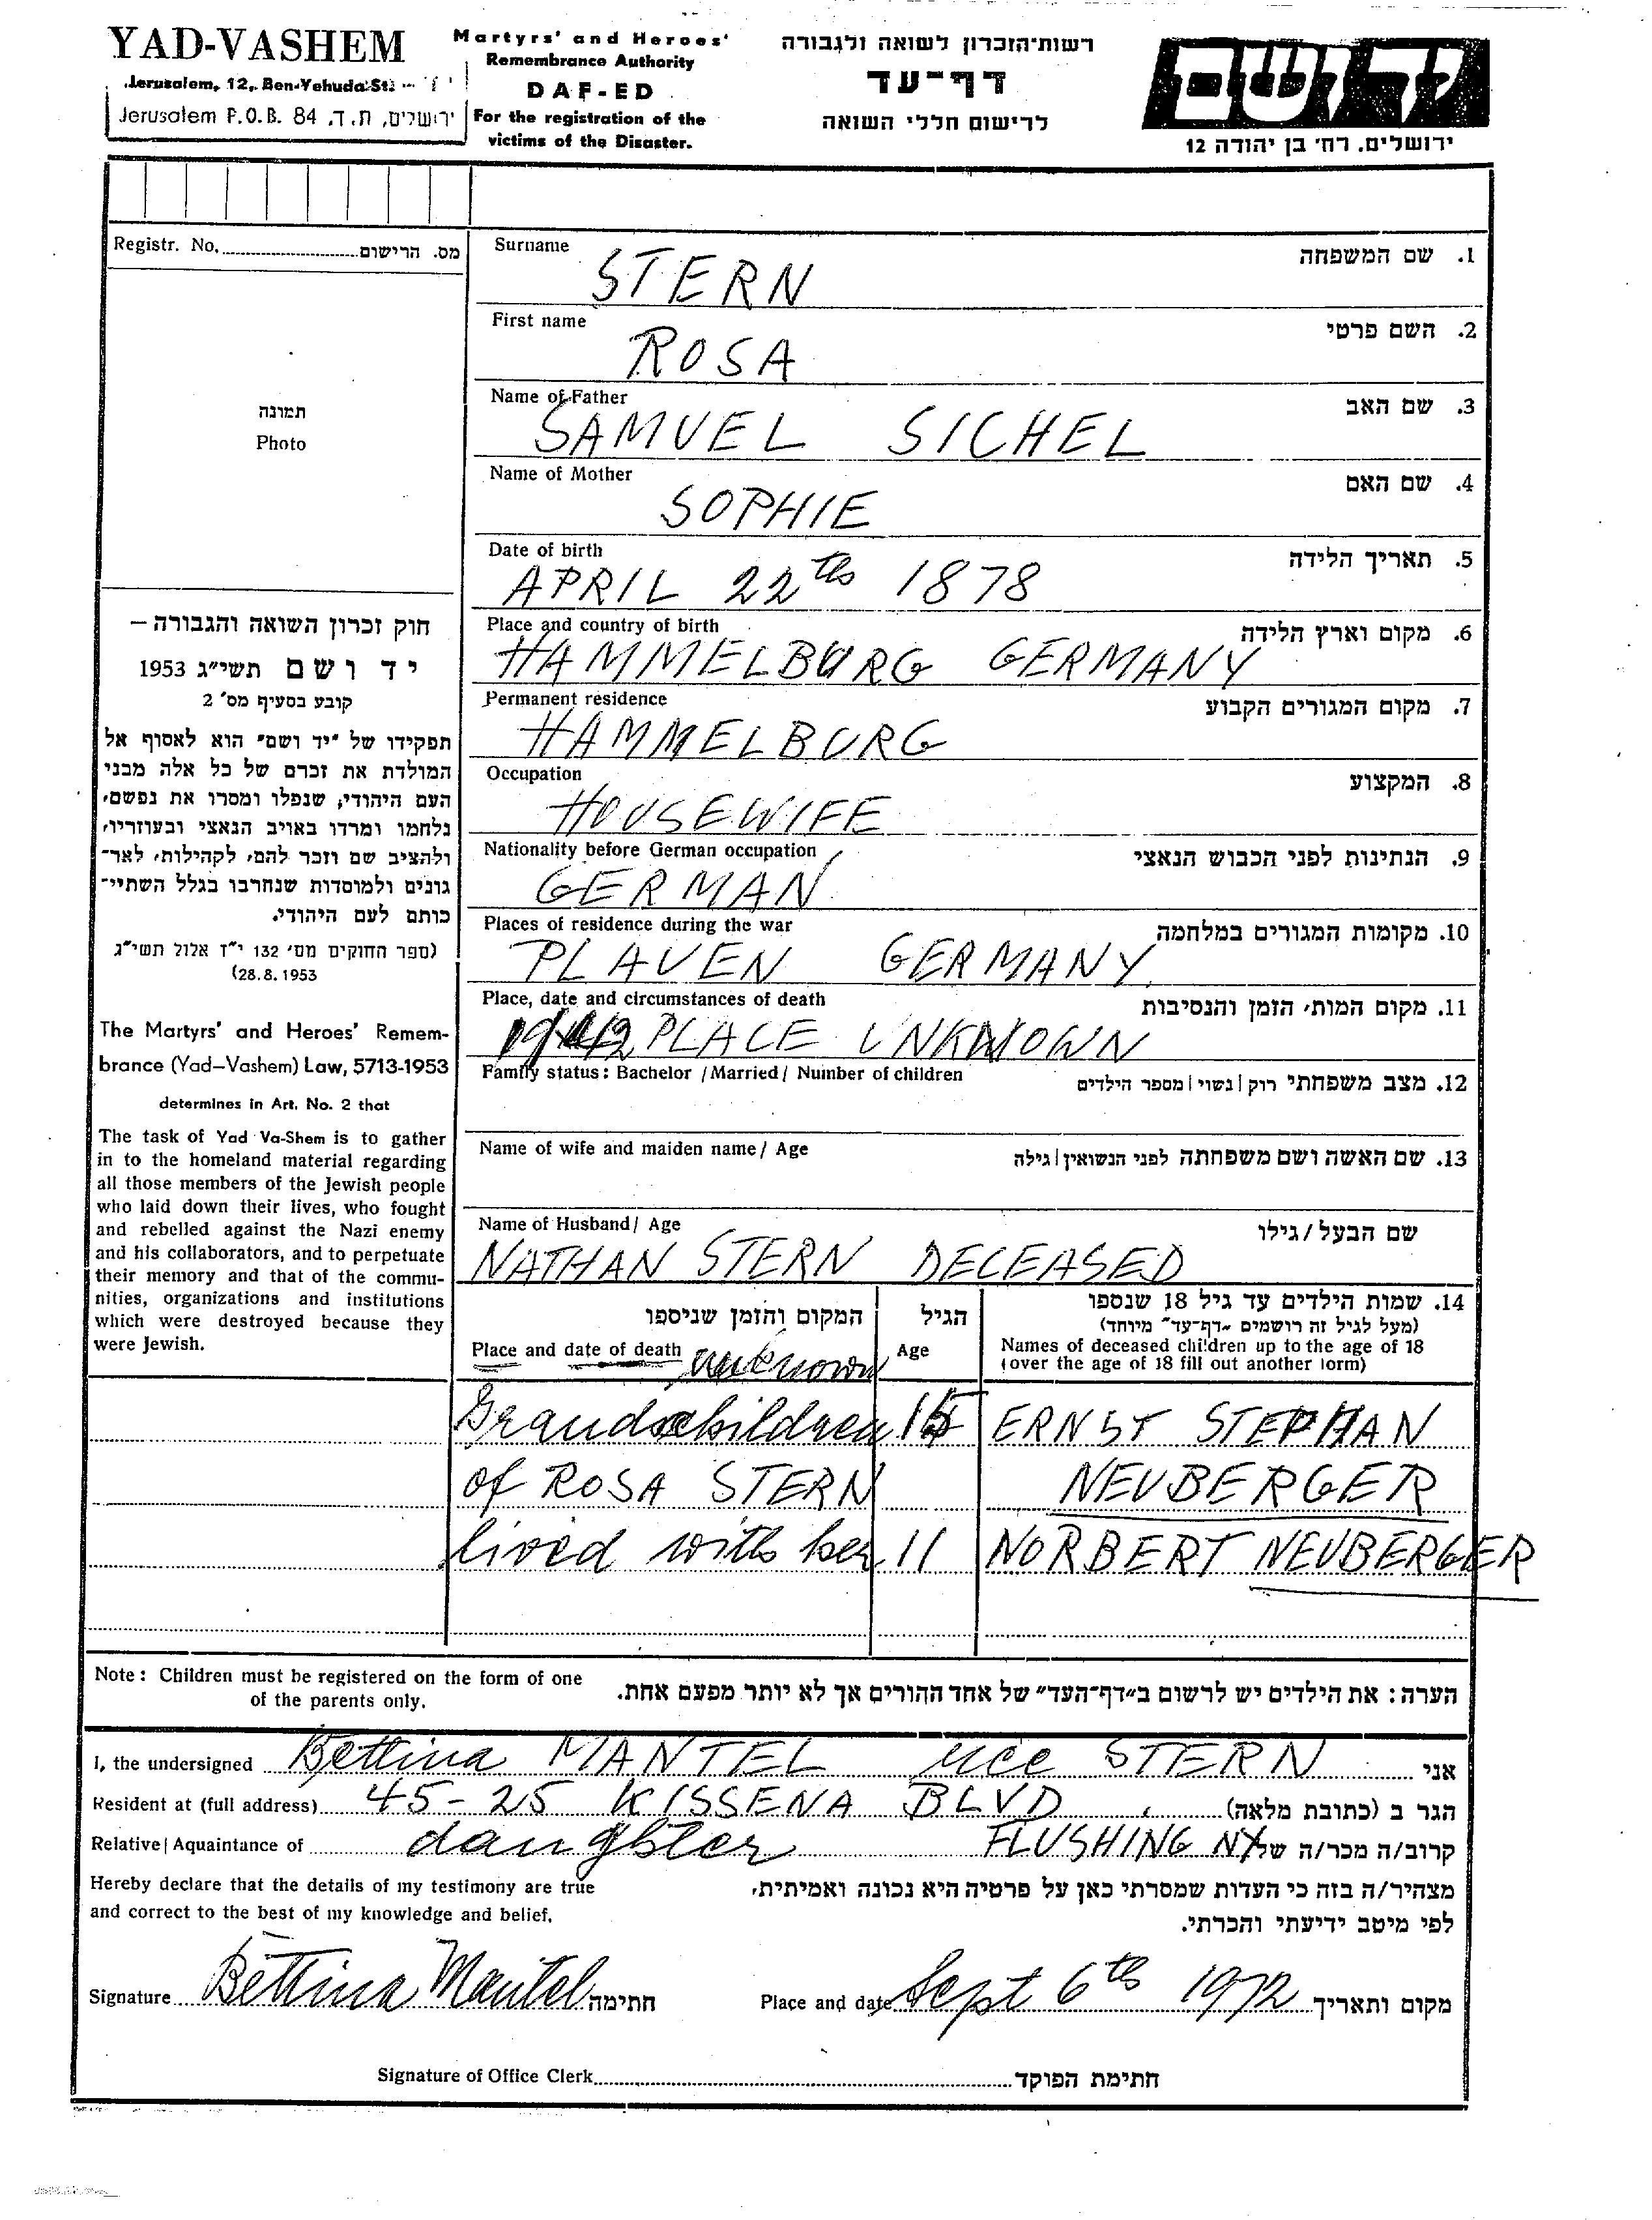 YAD-VASHEM
Jerusalem, 12, Ben-Yehuda St.
Jerusalem P.O.B. 84 ירושלים, ת.ד.
Martyrs' and Heroes'
Remembrance Authority
DAF-ED
For the registration of the
victims of the Disaster.
רשות־הזכרון לשואה ולגבורה
דף־עד
לרישום חללי השואה
ידושם
ירושלים, רח' בן יהודה 12
Registr. No. מס. הרישום
תמונה
Photo
חוק זכרון השואה והגבורה —
יד ושם תשי"ג 1953
קובע בסעיף מס' 2
תפקידו של "יד ושם" הוא לאסוף אל
המולדת את זכרם של כל אלה מבני
העם היהודי, שנפלו ומסרו את נפשם,
נלחמו ומרדו באויב הנאצי ובעוזריו,
ולהציב שם וזכר להם, לקהילות, לאר־
גונים ולמוסדות שנחרבו בגלל השתיי־
כותם לעם היהודי.
(ספר החוקים מס' 132 י"ז אלול תשי"ג
28.8.1953)
The Martyrs' and Heroes' Remem-
brance (Yad-Vashem) Law, 5713-1953
determines in Art. No. 2 that
The task of Yad Va-Shem is to gather
in to the homeland material regarding
all those members of the Jewish people
who laid down their lives, who fought
and rebelled against the Nazi enemy
and his collaborators, and to perpetuate
their memory and that of the commu-
nities, organizations and institutions
which were destroyed because they
were Jewish.
Surname 1. שם המשפחה
STERN
First name 2. השם פרטי
ROSA
Name of Father 3. שם האב
SAMUEL SICHEL
Name of Mother 4. שם האם
SOPHIE
Date of birth 5. תאריך הלידה
APRIL 22th 1878
Place and country of birth 6. מקום וארץ הלידה
HAMMELBURG GERMANY
Permanent residence 7. מקום המגורים הקבוע
HAMMELBURG
Occupation 8. המקצוע
HOUSEWIFE
Nationality before German occupation 9. הנתינות לפני הכבוש הנאצי
GERMAN
Places of residence during the war 10. מקומות המגורים במלחמה
PLAUEN GERMANY
Place, date and circumstances of death 11. מקום המות, הזמן והנסיבות
1942 PLACE UNKNOWN
Family status: Bachelor / Married / Number of children 12. מצב משפחתי רוק | נשוי | מספר הילדים
Name of wife and maiden name / Age 13. שם האשה ושם משפחתה לפני הנשואין | גילה
Name of Husband / Age שם הבעל / גילו
NATHAN STERN DECEASED
המקום והזמן שניספו
Place and date of death unknown
הגיל
Age
14. שמות הילדים עד גיל 18 שנספו
(מעל לגיל זה רושמים "דף־עד" מיוחד)
Names of deceased children up to the age of 18
(over the age of 18 fill out another form)
Grandchildren 15 ERNST STEPHAN
of ROSA STERN NEUBERGER
lived with her 11 NORBERT NEUBERGER
Note: Children must be registered on the form of one
of the parents only.
הערה: את הילדים יש לרשום ב"דף־העד" של אחד ההורים אך לא יותר מפעם אחת.
I, the undersigned Bettina MANTEL nee STERN אני
Resident at (full address) 45-25 KISSENA BLVD הגר ב (כתובת מלאה)
Relative | Aquaintance of daughter FLUSHING NY קרוב/ה מכר/ה של
Hereby declare that the details of my testimony are true
and correct to the best of my knowledge and belief.
מצהיר/ה בזה כי העדות שמסרתי כאן על פרטיה היא נכונה ואמיתית,
לפי מיטב ידיעתי והכרתי.
Signature Bettina Mantel חתימה Place and date Sept 6th 1972 מקום ותאריך
Signature of Office Clerk חתימת הפוקד